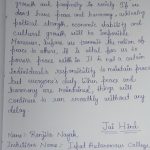 growth and prosperity to society. If we
don't have peace and harmony, achieving
political strength, economic stability and
cultural growth will be impossible.
Moreover, before we transmit the notion of
peace to others, it is vital for us to
possess peace within. It is not a certain
individual's responsibility to maintain peace
but everyone's duty. When peace and
harmony are maintained, things will
continue to run smoothly without any
delay.
Jai Hind
Name: Ranjita Nayak
Institution Name: Autonomous College